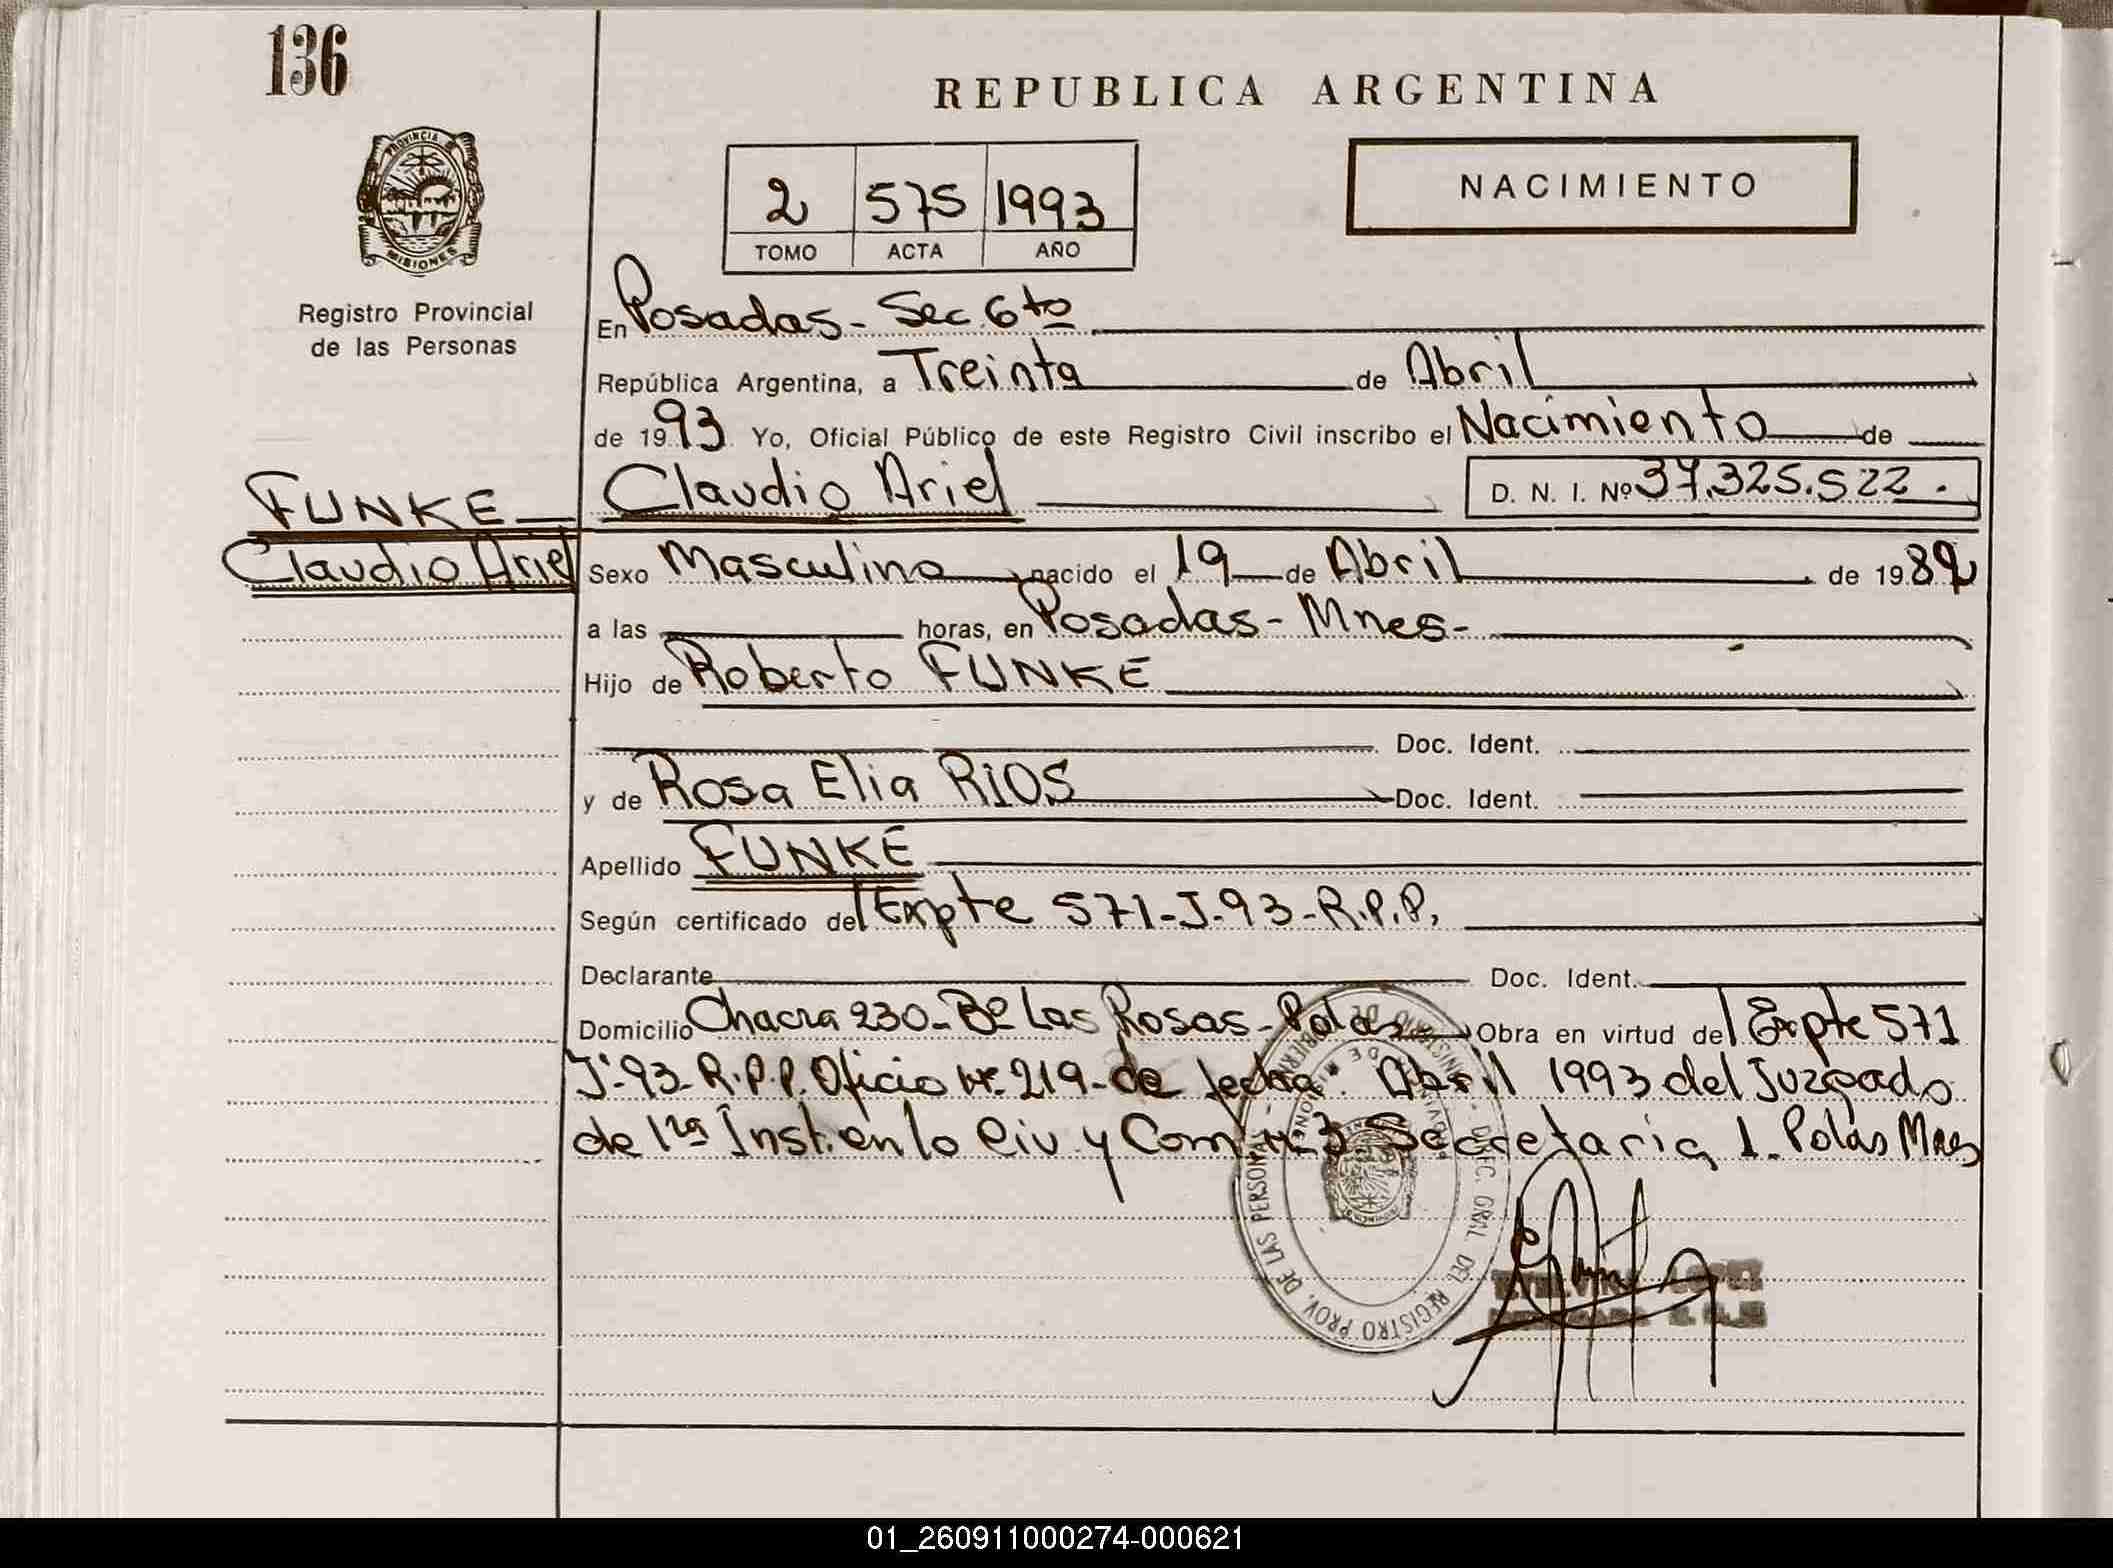 136
REPUBLICA ARGENTINA
PROVINCIA
MISIONES
Registro Provincial
de las Personas
2 575 1993
TOMO ACTA AÑO
NACIMIENTO
En Posadas - Sec. 6to
República Argentina, a Treinta de Abril
de 1993 Yo, Oficial Público de este Registro Civil inscribo el Nacimiento de
FUNKE Claudio Ariel D. N. I. Nº 37.325.522.
Claudio Ariel Sexo Masculino nacido el 19 de Abril de 1982
a las horas, en Posadas - Mnes-
Hijo de Roberto FUNKE
Doc. Ident.
y de Rosa Elia RIOS Doc. Ident.
Apellido FUNKE
Según certificado del Expte 571-J-93-R.P.P.
Declarante Doc. Ident.
Domicilio Chacra 230- Bº Las Rosas- Pdas Obra en virtud del Expte 571
J-93-R.P.P. Oficio Nº 219- de fecha Abril 1993 del Juzgado
de 1ra Inst. en lo Civ. y Com. Nº 3 Secretaria 1. Pdas Mnes
DE LAS PERSONAS
GRAL. DEL REGISTRO PROV.
01_260911000274-000621